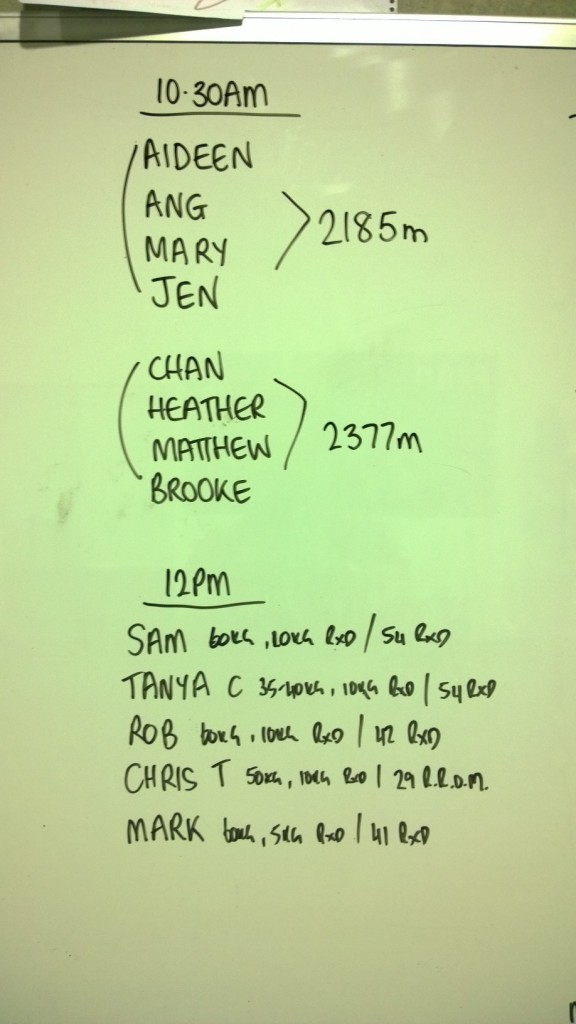 10.30AM
AIDEEN
ANG
MARY
JEN
2185m
CHAN
HEATHER
MATTHEW
BROOKE
2377m
12PM
SAM 60KG, 20KG RXD / 54 RXD
TANYA C 35-40KG, 10KG RXD / 54 RXD
ROB 60KG, 10KG RXD / 42 RXD
CHRIS T 50KG, 10KG RXD / 29 R.R.D.M.
MARK 60KG, 5KG RXD / 41 RXD